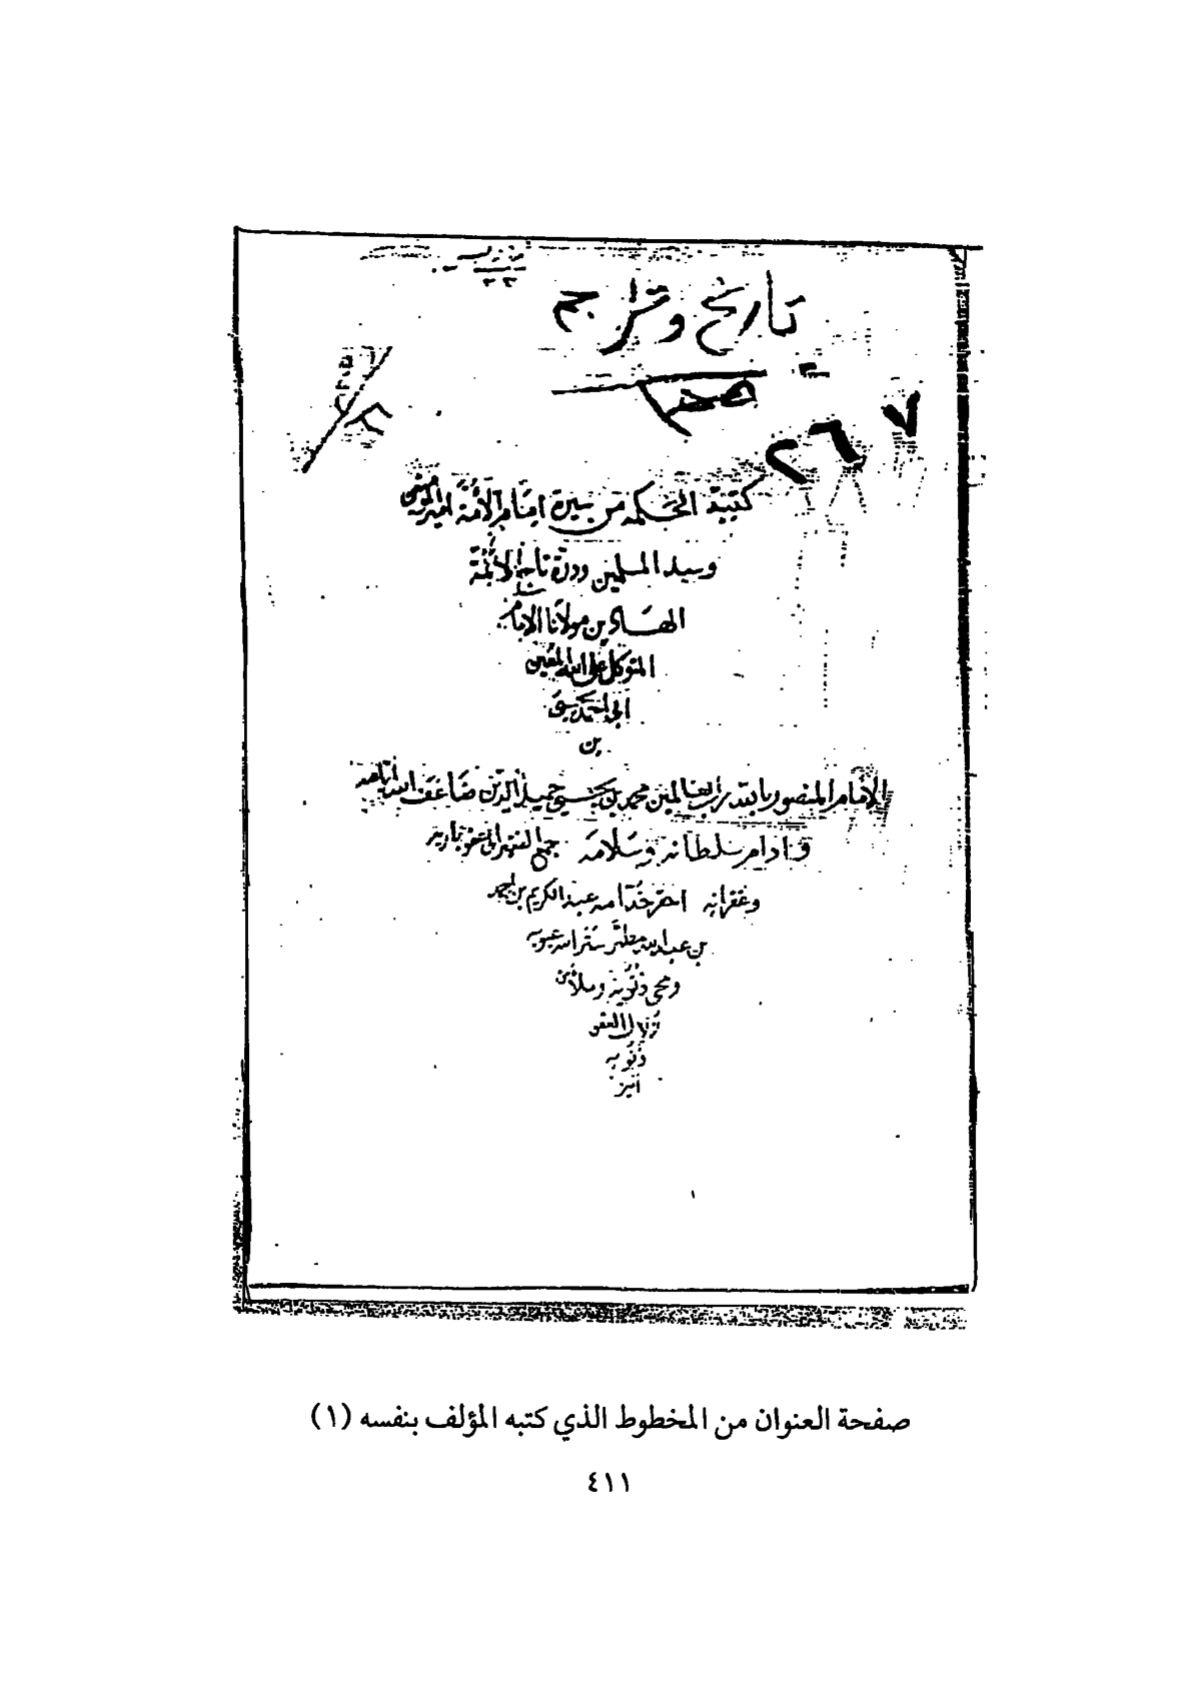 تاريخ وتراجم
٢٦٧
كتيبة الحكمة من سيرة امام الأمة امير المؤمنين
وسيد المسلمين ودرة تاج الأئمة
الهادي بن مولانا الامام
المتوكل على الله المعين
يحيى
بن
الإمام المنصور بالله رب العالمين محمد بن يحيى حميد الدين ضاعف الله
وادام سلطانه وسلامه جمع الفقير الى عفو باريه
وغفرانه احقر خدامه عبد الكريم بن احمد
بن عبد الله مطهر ستر الله عيوبه
ومحى ذنوبه وملأ من
زلال العفو
ذنوبه
امين
صفحة العنوان من المخطوط الذي كتبه المؤلف بنفسه (١)
٤١١